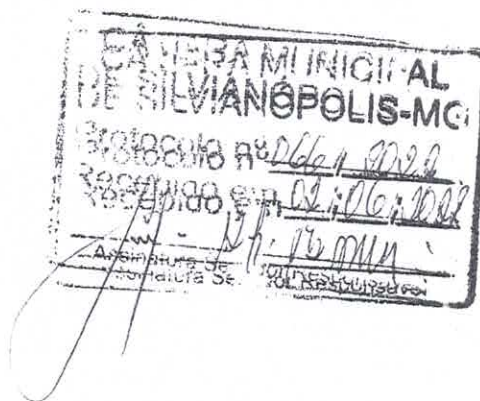 CÂMARA MUNICIPAL
DE SILVIANÓPOLIS-MG
Protocolo nº 066 / 2022
Recebido em 02 / 06 / 2022
Assinatura Se